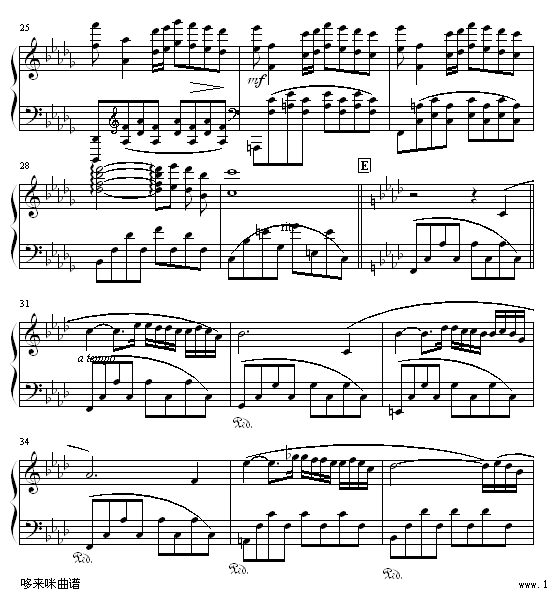 25
mf
28
E
rit.
31
a tempo
Ped.
34
Ped.
Ped.
Ped.
哆来咪曲谱
www.1